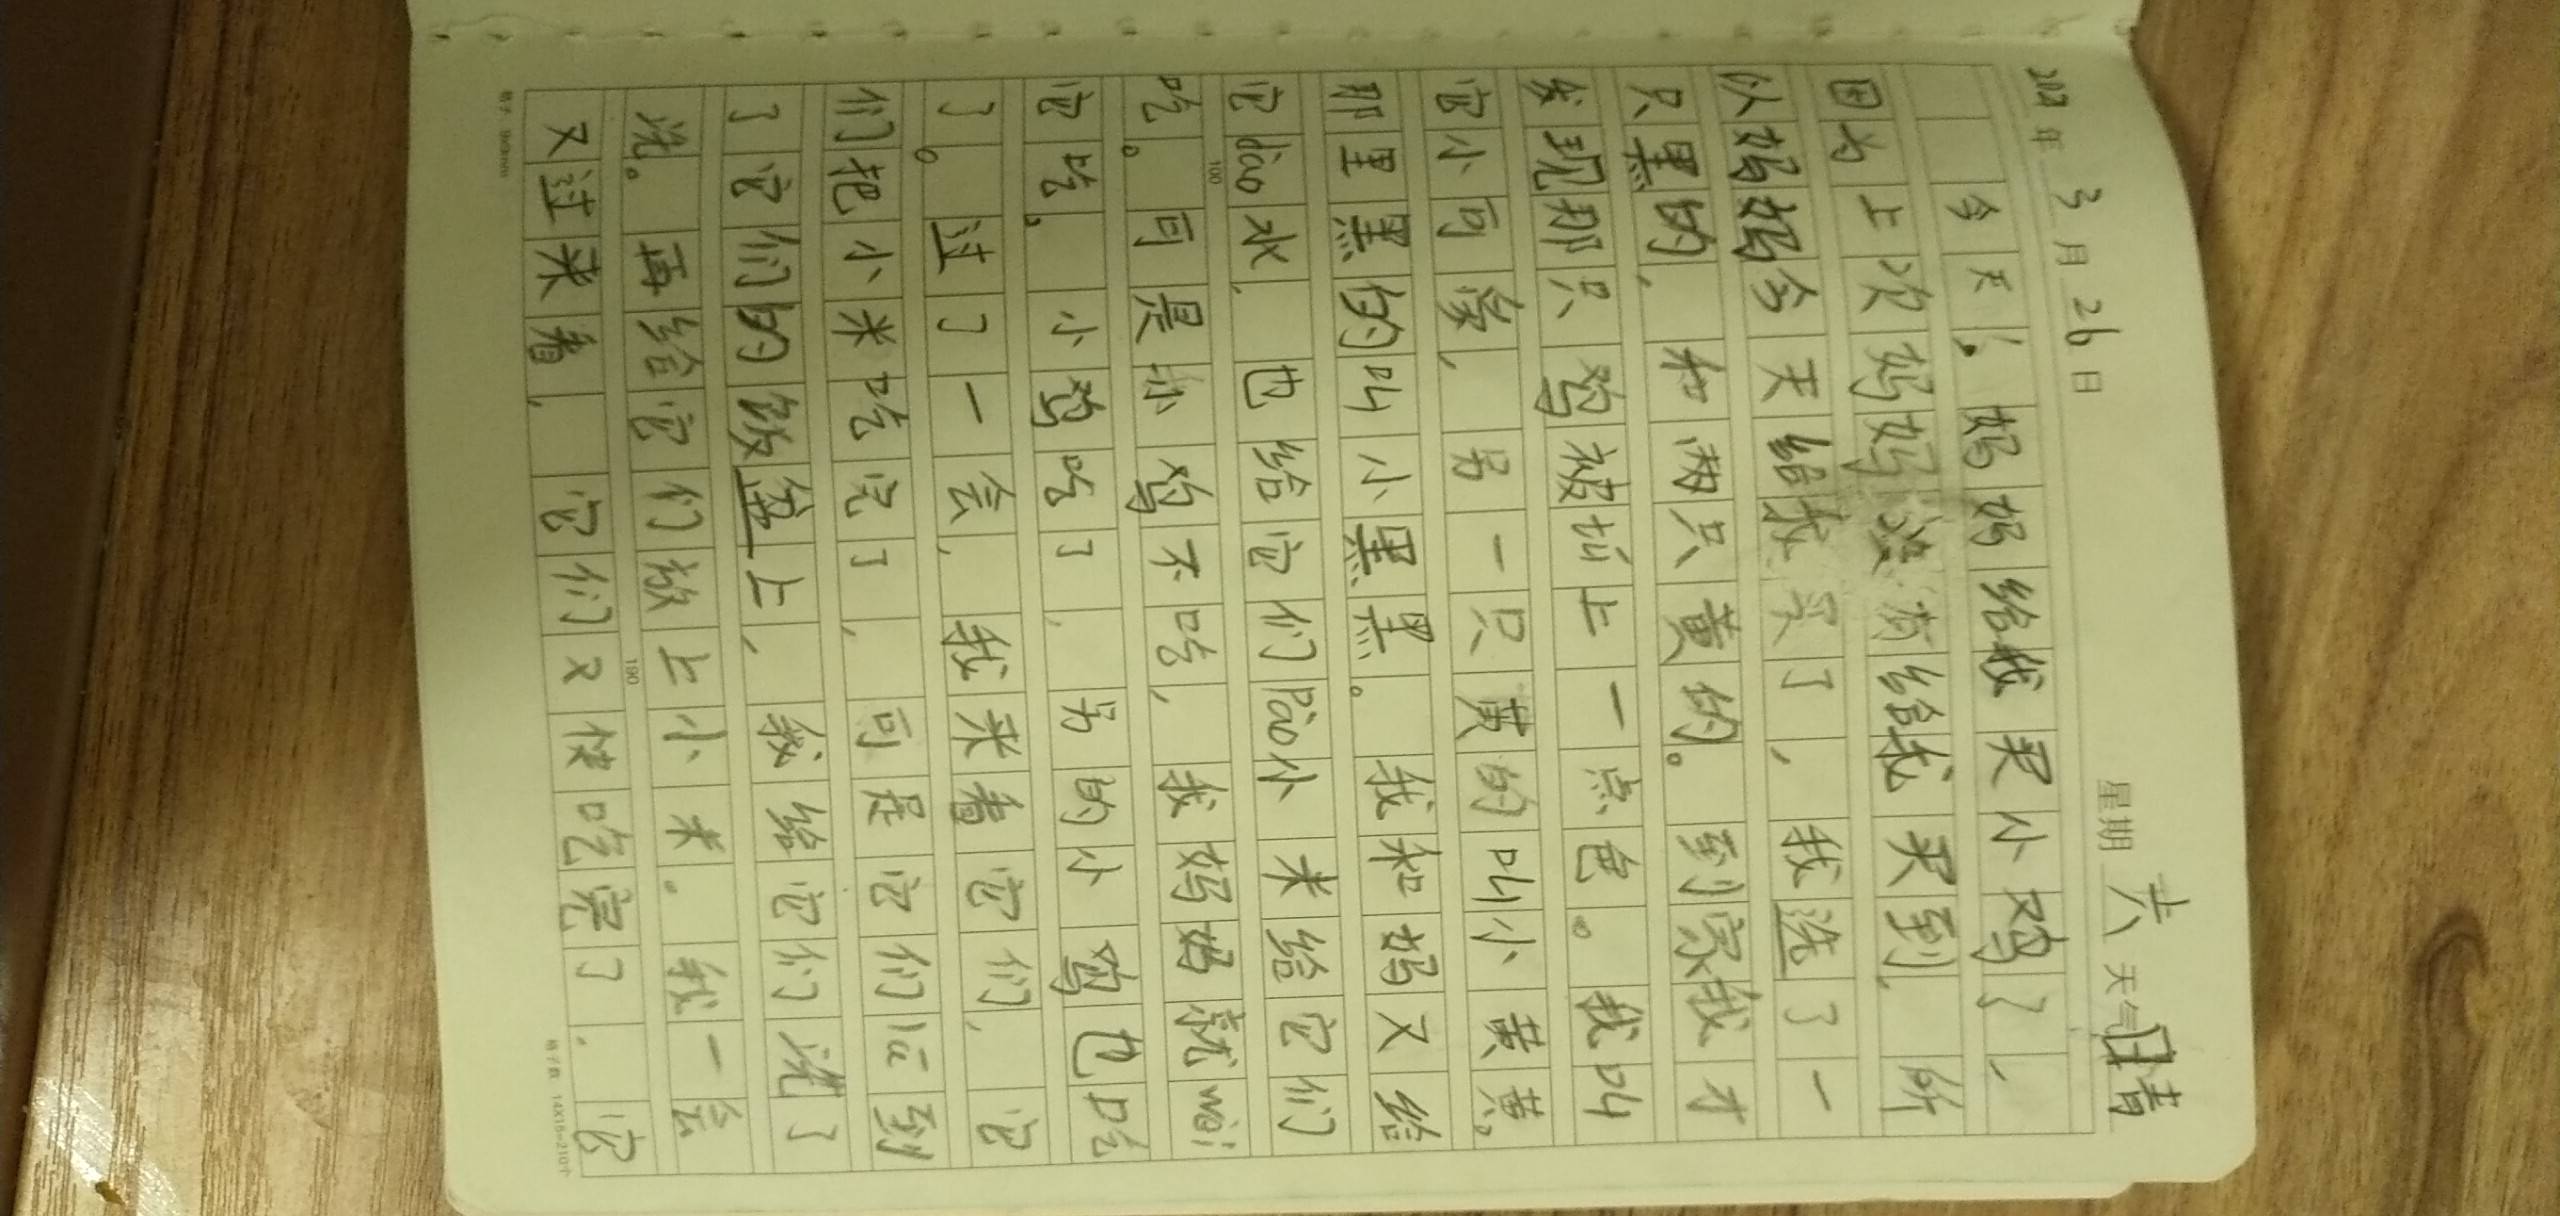 年 3 月 26 日 星期 六 天气 晴
今天，妈妈给我买小鸡了，
因为上次妈妈没有给我买到，所
以妈妈今天给我买了，我选了一
只黑的，和两只黄的。到家我才
发现那只鸡被切上一点色。我叫
它小可家，另一只黄的叫小黄黄。
那里黑的叫小黑黑。我和妈又给
它dào水，也给它们Pào小米给它们
100
吃。可是小鸡不吃，我妈妈就wèi
它吃。小鸡吃了，另的小鸡也吃
了。过了一会，我来看它们，它
们把小米吃完了，可是它们lā到
了它们的饭盒上，我给它们洗了
洗。再给它们放上小米。我一会
190
又过来看，它们又快吃完了，它
格子数 14X15=210个